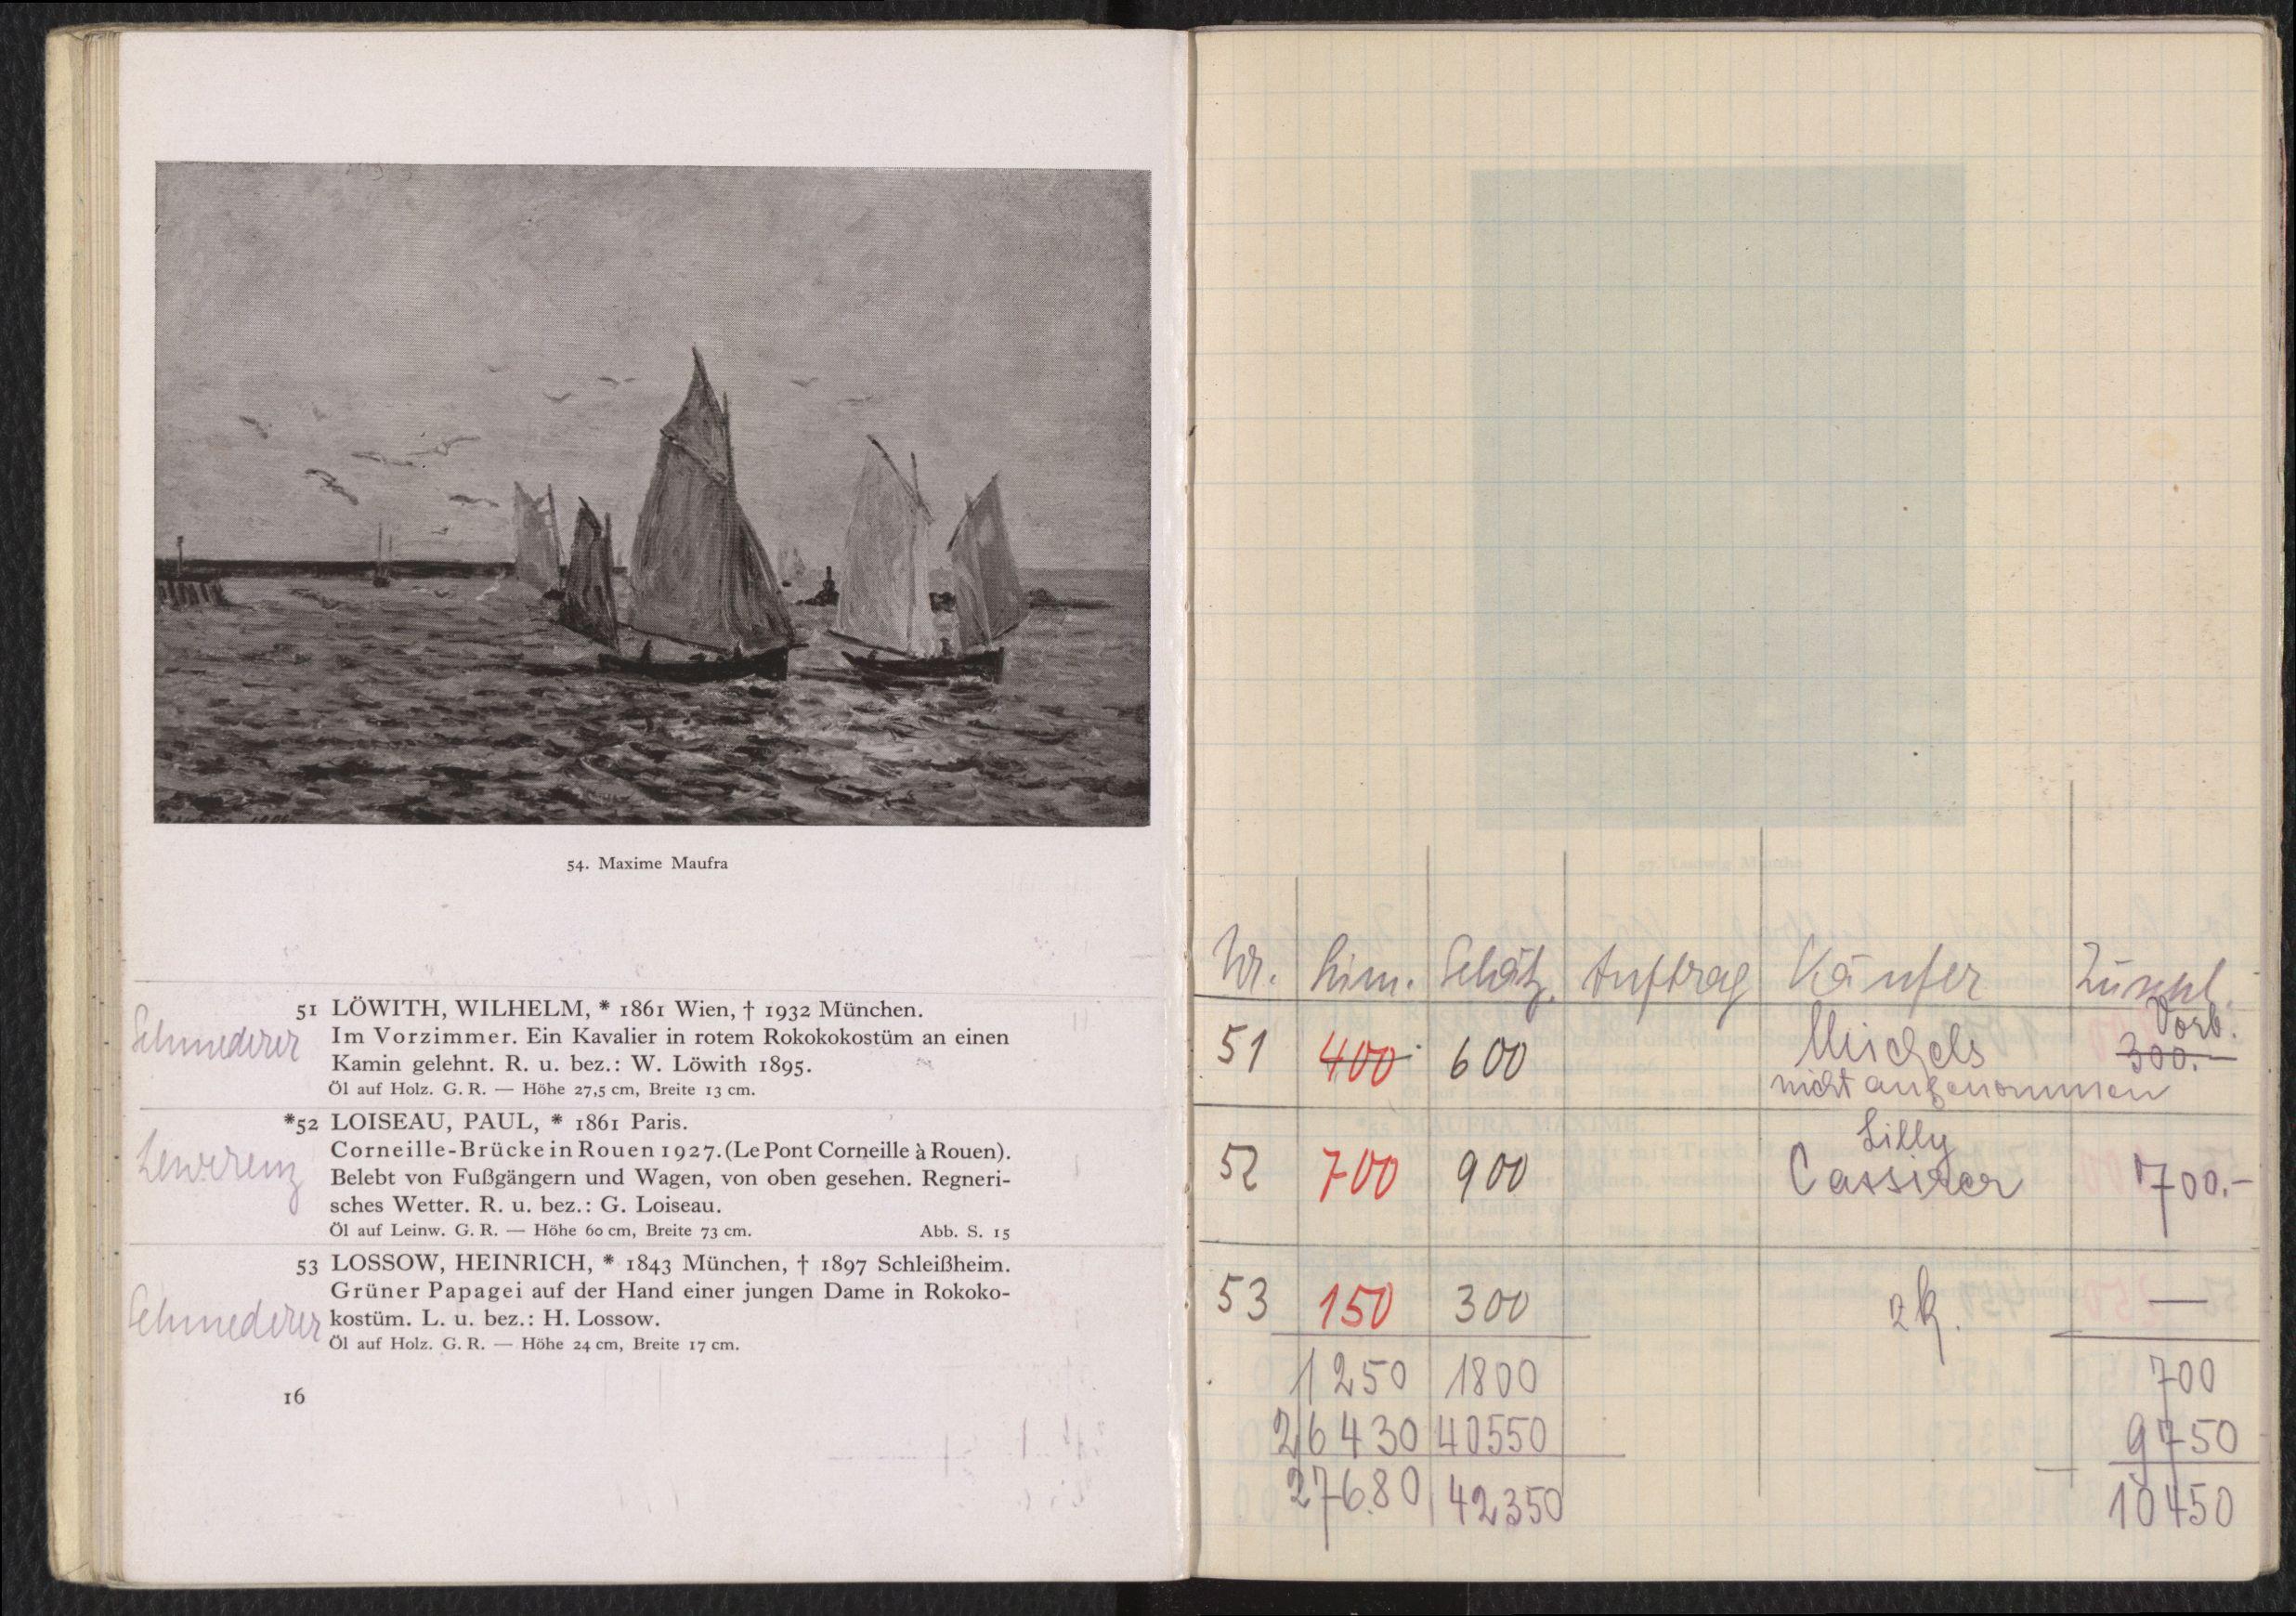 54. Maxime Maufra
51 LÖWITH, WILHELM, * 1861 Wien, † 1932 München.
Schmederer
Im Vorzimmer. Ein Kavalier in rotem Rokokokostüm an einen
Kamin gelehnt. R. u. bez.: W. Löwith 1895.
Öl auf Holz. G. R. — Höhe 27,5 cm, Breite 13 cm.
*52 LOISEAU, PAUL, * 1861 Paris.
Corneille-Brücke in Rouen 1927. (Le Pont Corneille à Rouen).
Belebt von Fußgängern und Wagen, von oben gesehen. Regneri-
sches Wetter. R. u. bez.: G. Loiseau.
Öl auf Leinw. G. R. — Höhe 60 cm, Breite 73 cm. Abb. S. 15
53 LOSSOW, HEINRICH, * 1843 München, † 1897 Schleißheim.
Grüner Papagei auf der Hand einer jungen Dame in Rokoko-
Schmederer
kostüm. L. u. bez.: H. Lossow.
Öl auf Holz. G. R. — Höhe 24 cm, Breite 17 cm.
16
Nr. Lim. Schätz. Auftrag Käufer Zuschl.
Vorb.
51 400 600 Michels 300.—
nicht aufgenommen
Lilly
52 700 900 Cassirer 700.—
53 150 300 —
1250 1800 700
26430 40550 9750
27680 42350 10450